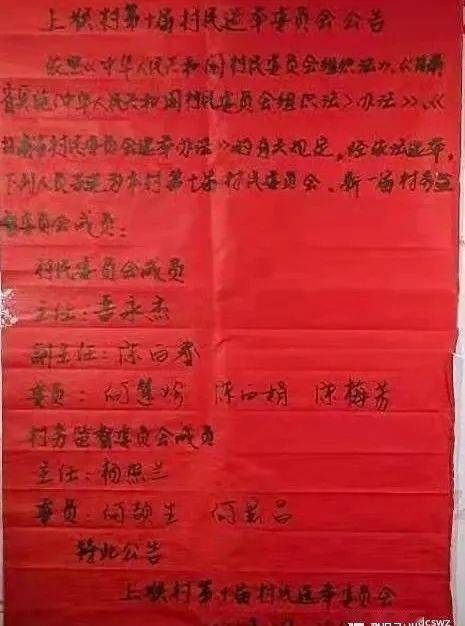 上坝村第十届村民选举委员会公告
依照《中华人民共和国村民委员会组织法》、《甘肃
省实施〈中华人民共和国村民委员会组织法〉办法》、《
甘肃省村民委员会选举办法》的有关规定，经依法选举，
下列人员当选为本村第十届村民委员会、新一届村务监
督委员会成员：
村民委员会成员
主任：永杰
副主任：陈
委员：何 陈娟 陈梅芳
村务监督委员会成员
主任：杨照兰
委员：何生 何昌
特此公告
上坝村第十届村民选举委员会
dcswz